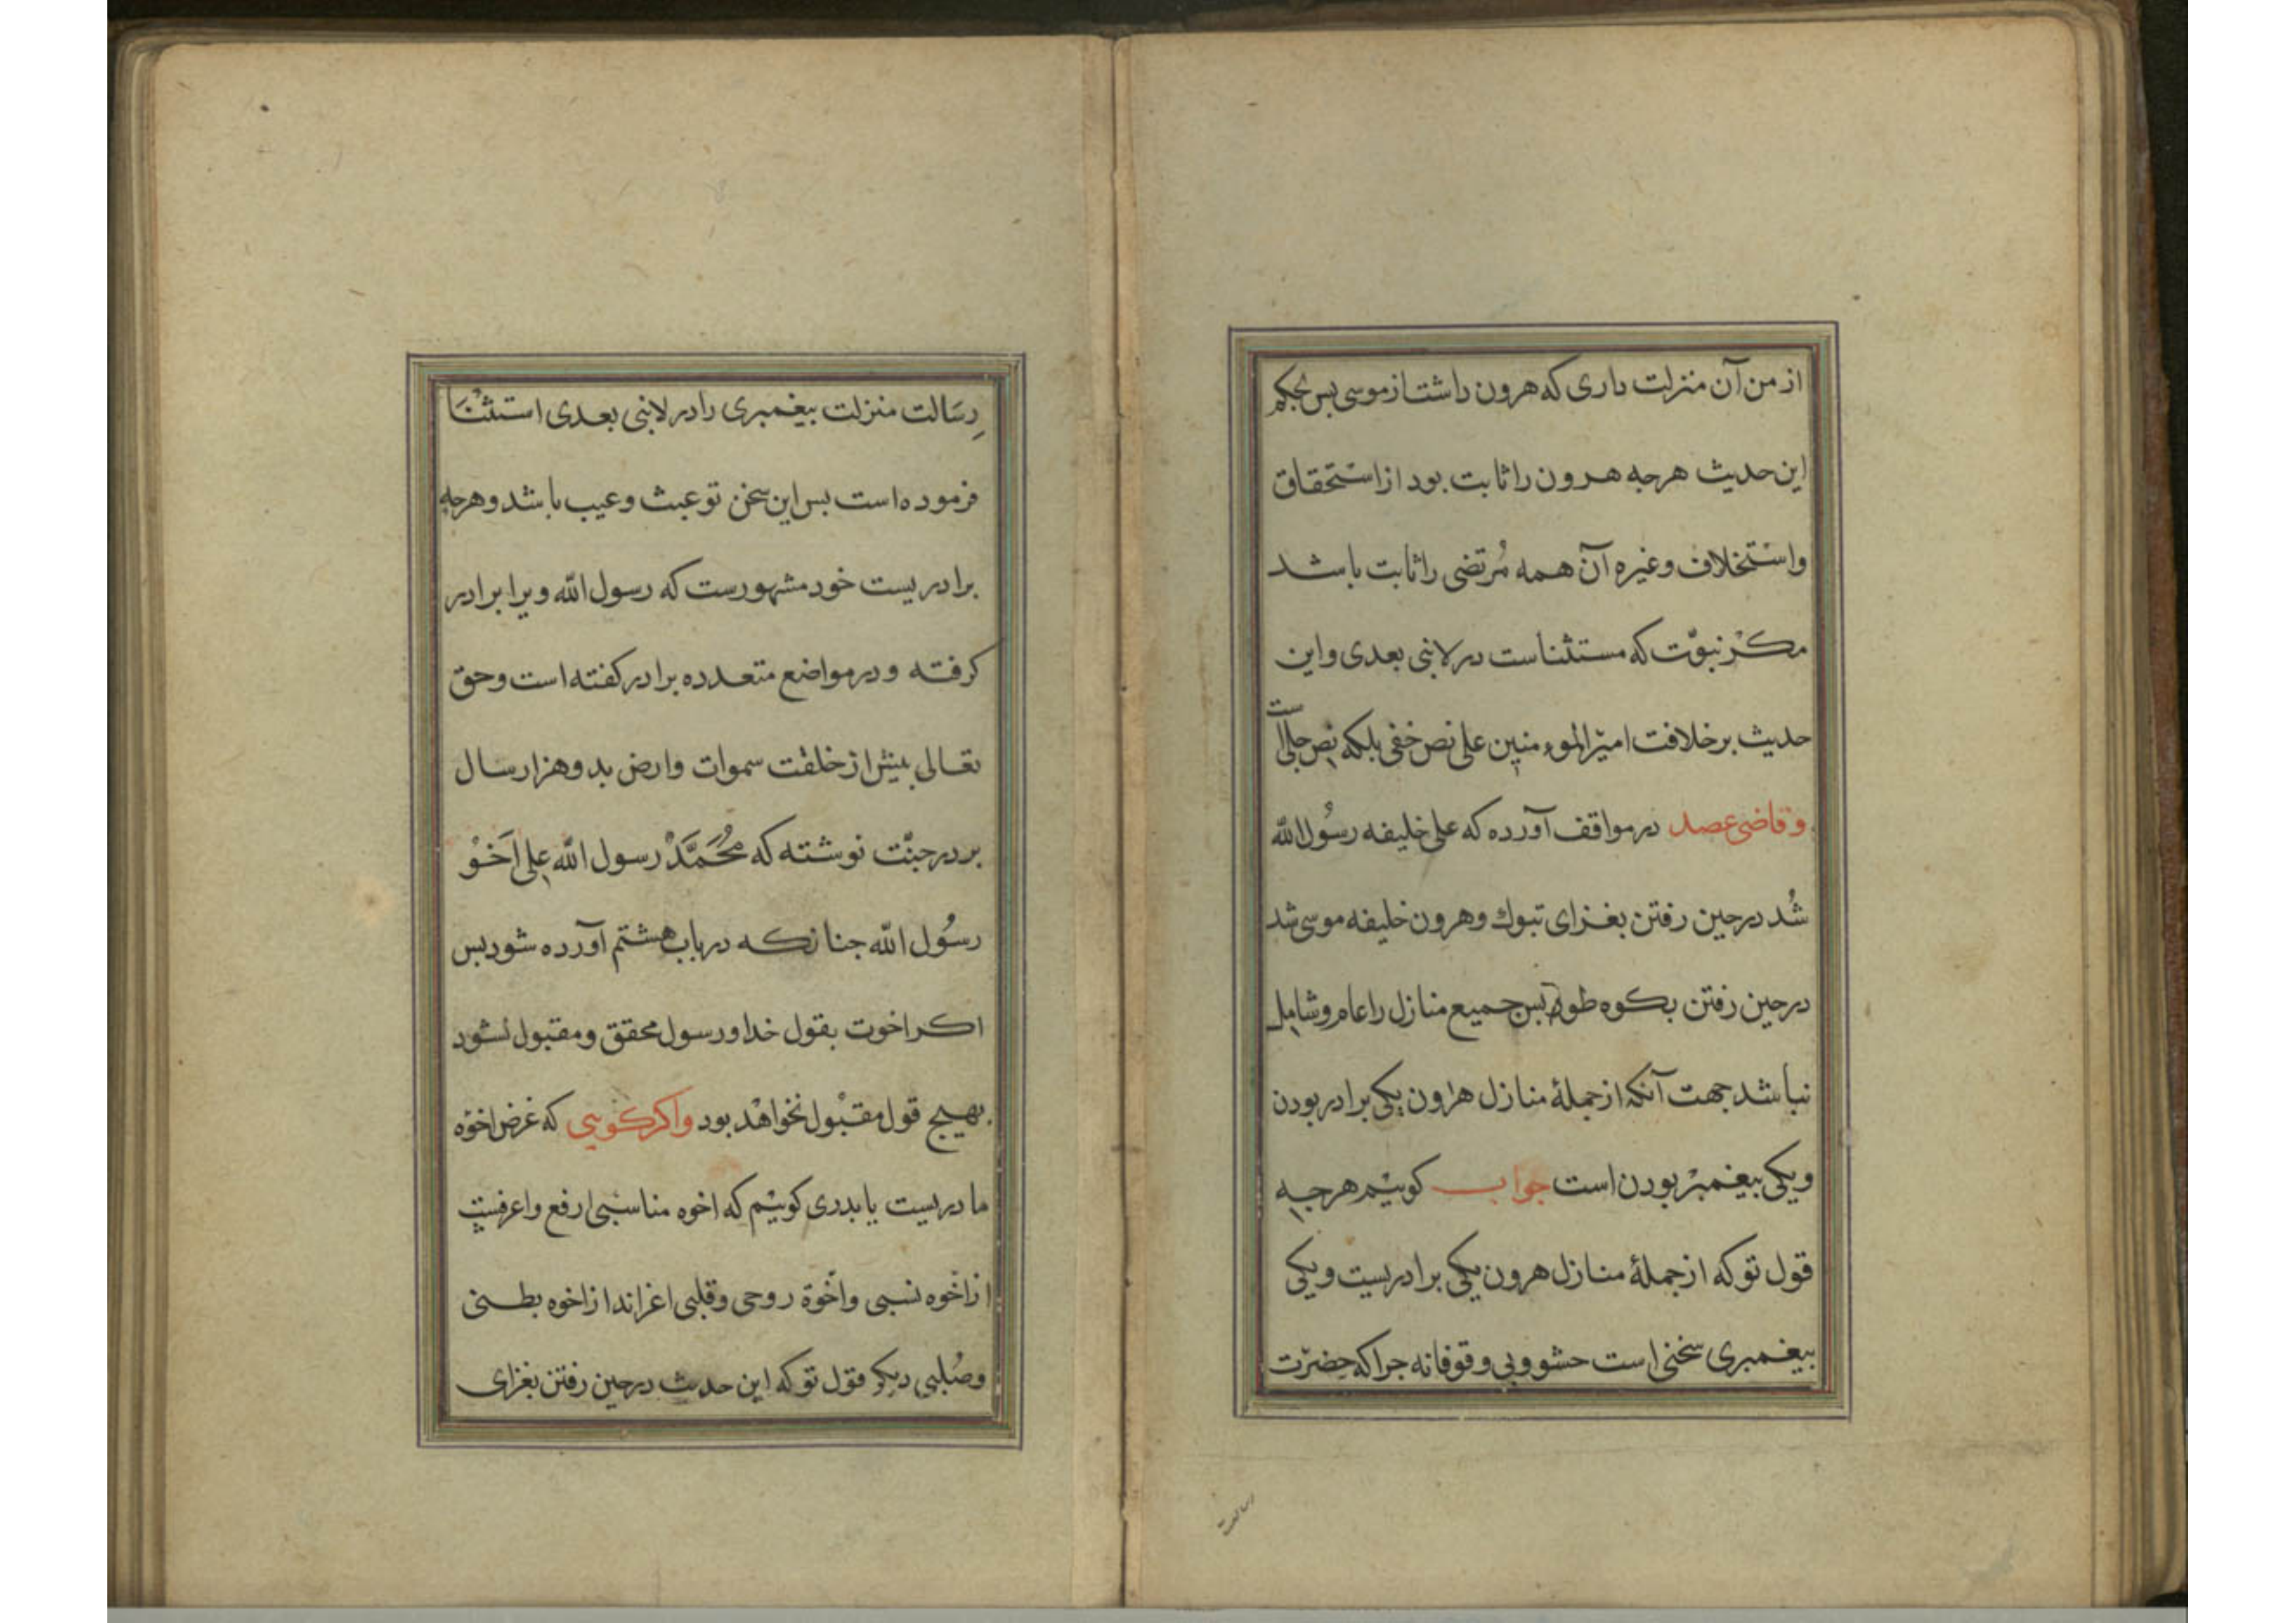 از من آن منزلت داری که هرون داشت از موسی بس بحکم
این حدیث هرجه هرون را ثابت بود از استحقاق
واستخلاف وغیره آن همه مُرتضی را ثابت باشد
مکر نبوّت که مستثناست در لانبی بعدی واین
حدیث بر خلافت امیرالموءمنین علی نص خفی بلکه نص جلی است
وقاضی عصد در مواقف آورده که علی خلیفه رسُول الله
شُد در حین رفتن بغزای تبوک وهرون خلیفه موسی شد
در حین رفتن بکوه طور بس جمیع منازل را عام وشامل
نباشد جهت آنکه از جملهٔ منازل هرون یکی برادر بودن
ویکی بیغمبر بودن است جواب کوییم هرجه
قول تو که از جملهٔ منازل هرون یکی برادریست ویکی
بیغمبری سخنی است حشو وبی وقوفانه جرا که حضرت
رسالت
رِسَالت منزلت بیغمبری را در لانبی بعدی استثنَا
فرموده است بس این سخن تو عبث وعیب باشد وهرجه
برادریست خود مشهورست که رسول الله ویرا برادر
کرفته ودر مواضع متعدده برادر کفته است وحق
تعالی بیش از خلقت سموات وارض بدو هزار سال
بر در جنّت نوشته که مُحَمَّدْ رسول الله علی اَخُوْ
رسُول الله جنانکه در باب هشتم آورده شود بس
اکر اخوت بقول خدا ورسول محقق ومقبول نشود
بهیج قول مقبْول نخواهْد بود واکر کویی که غرض اخوّه
مادریست یا بدری کوییم که اخوه مناسبی ارفع واعرفست
از اخّوه نسبی واخّوة روحی وقلبی اعزاند از اخوه بطنی
وصُلبی دیکر قول تو که این حدیث در حین رفتن بغزای